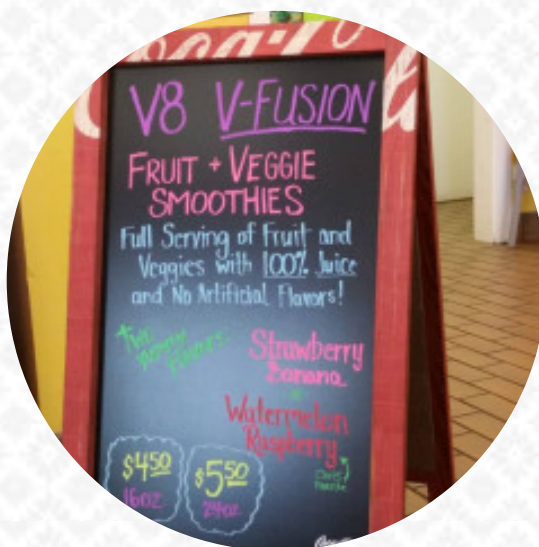 Coca-Cola
V8 V-FUSION
FRUIT + VEGGIE
SMOOTHIES
Full Serving of Fruit and
Veggies with 100% Juice
and No Artificial Flavors!
Strawberry
Banana
Watermelon
Raspberry
$4.50
16oz
$5.50
24oz